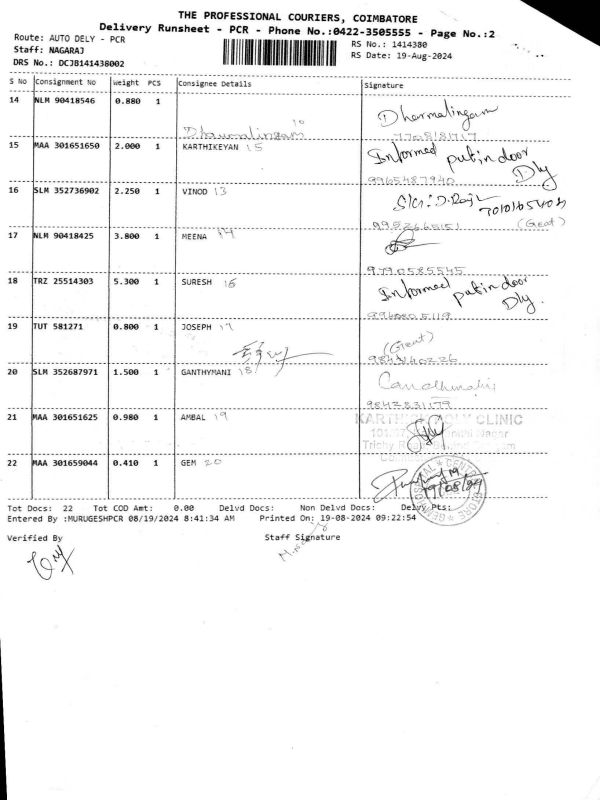 THE PROFESSIONAL COURIERS, COIMBATORE
Delivery Runsheet - PCR - Phone No.:0422-3505555 - Page No.:2
Route: AUTO DELY - PCR
RS No.: 1414380
Staff: NAGARAJ
RS Date: 19-Aug-2024
DRS No.: DCJB141438002
S No Consignment No Weight PCS Consignee Details Signature
14 NLM 90418546 0.880 1 Dharmalingam 10 Dharmalingam
15 MAA 301651650 2.000 1 KARTHIKEYAN 15 Informed put in door Dly
9965487940
16 SLM 352736902 2.250 1 VINOD 13
(Geat)
17 NLM 90418425 3.800 1 MEENA 14
9790585545
18 TRZ 25514303 5.300 1 SURESH 16 Informed put in door Dly.
19 TUT 581271 0.800 1 JOSEPH 17
20 SLM 352687971 1.500 1 GANTHYMANI 18
9842831179
21 MAA 301651625 0.980 1 AMBAL 19
CLINIC
Nagar
Trichy
22 MAA 301659044 0.410 1 GEM 20
19/08/24
Tot Docs: 22 Tot COD Amt: 0.00 Delvd Docs: Non Delvd Docs: Delvd Pts:
Entered By :MURUGESHPCR 08/19/2024 8:41:34 AM Printed On: 19-08-2024 09:22:54
Verified By Staff Signature